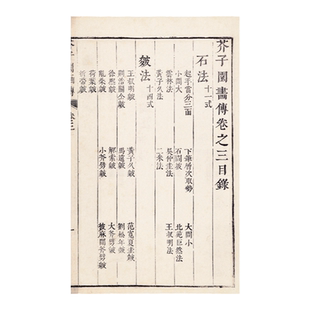 芥子園畫傳卷之三目錄
石法 十一式
起手當分三面 下筆層次取勢 大間小
小間大 石間坡 北苑巨然法
雲林法 吳仲圭法 王叔明法
黃子久法 二米法
皴法 十四式
王叔明皴 黃子久皴 范寬夏圭皴
馬遠皴 劉松年皴
解索皴 大斧劈皴
亂柴皴 小斧劈皴 披麻間斧劈皴
荷葉皴